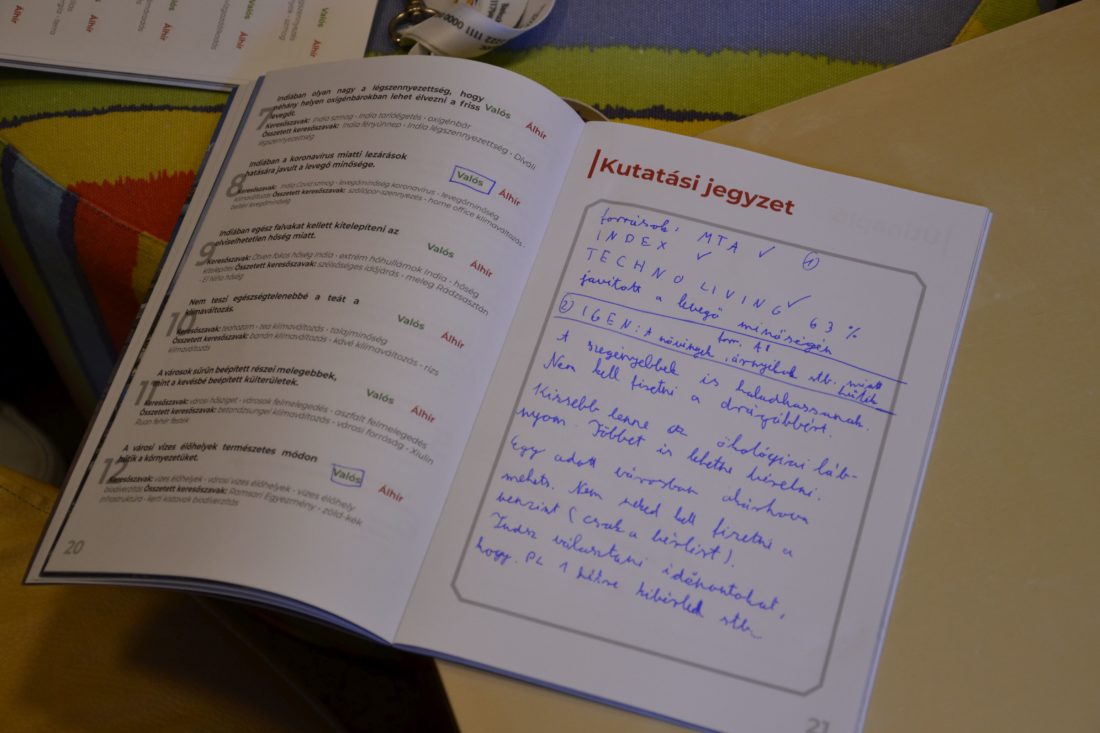 Valós
Álhír
Valós
Álhír
Álhír
Valós
Álhír
1111 0000
7
Indiában olyan nagy a légszennyezettség, hogy
néhány helyen oxigénbárokban lehet élvezni a friss
levegőt.
Valós
Álhír
Keresőszavak: India szmog - India tarlóégetés - oxigénbár
Összetett keresőszavak: India fényünnep - India légszennyezettség - Diváli
légszennyezettség
8
Indiában a koronavírus miatti lezárások
hatására javult a levegő minősége.
Valós
Álhír
Keresőszavak: India Covid szmog - levegőminőség koronavírus - levegőminőség
klímaváltozás Összetett keresőszavak: szállópor-szennyezés - home office klímaváltozás -
beltéri levegőminőség
9
Indiában egész falvakat kellett kitelepíteni az
elviselhetetlen hőség miatt.
Valós
Álhír
Keresőszavak: Ötven fokos hőség India - extrém hőhullámok India - hőség
kitelepítés Összetett keresőszavak: szélsőséges időjárás - meleg Rádzsasztán
- El Niño hőség
10
Nem teszi egészségtelenebbé a teát a
klímaváltozás.
Valós
Álhír
Keresőszavak: teanozam - tea klímaváltozás - talajminőség
Összetett keresőszavak: banán klímaváltozás - kávé klímaváltozás - rizs
klímaváltozás
11
A városok sűrűn beépített részei melegebbek,
mint a kevésbé beépített külterületek.
Valós
Álhír
Keresőszavak: városi hősziget - városok felmelegedés - aszfalt felmelegedés
Összetett keresőszavak: betondzsungel klímaváltozás - városi forróság - Xiulin
Ruan fehér festék
12
A városi vizes élőhelyek természetes módon
hűtik a környezetüket.
Valós
Álhír
Keresőszavak: vizes élőhelyek - városi vizes élőhelyek - vizes élőhely
biodiverzitás Összetett keresőszavak: Ramsari Egyezmény - zöld-kék
infrastruktúra - kerti kistavak biodiverzitás
20
Kutatási jegyzet
források: MTA ✓ ①
INDEX ✓
TECHNO LIVING ✓ 63 %
javított a levegő minőségén
② IGEN: A növények, árnyékuk stb. miatt
hűtik
A szegényebbek is haladhassanak.
Nem kell fizetni a drágábbért.
Kissebb lenne az ökológiai láb-
nyom. Többet is lehetne bérelni.
Egy adott városban akárhova
mehetsz. Nem neked kell fizetni a
benzint (csak a bérlést).
Tudsz választani időpontokat,
hogy pl 1 hétre kibérled stb.
21